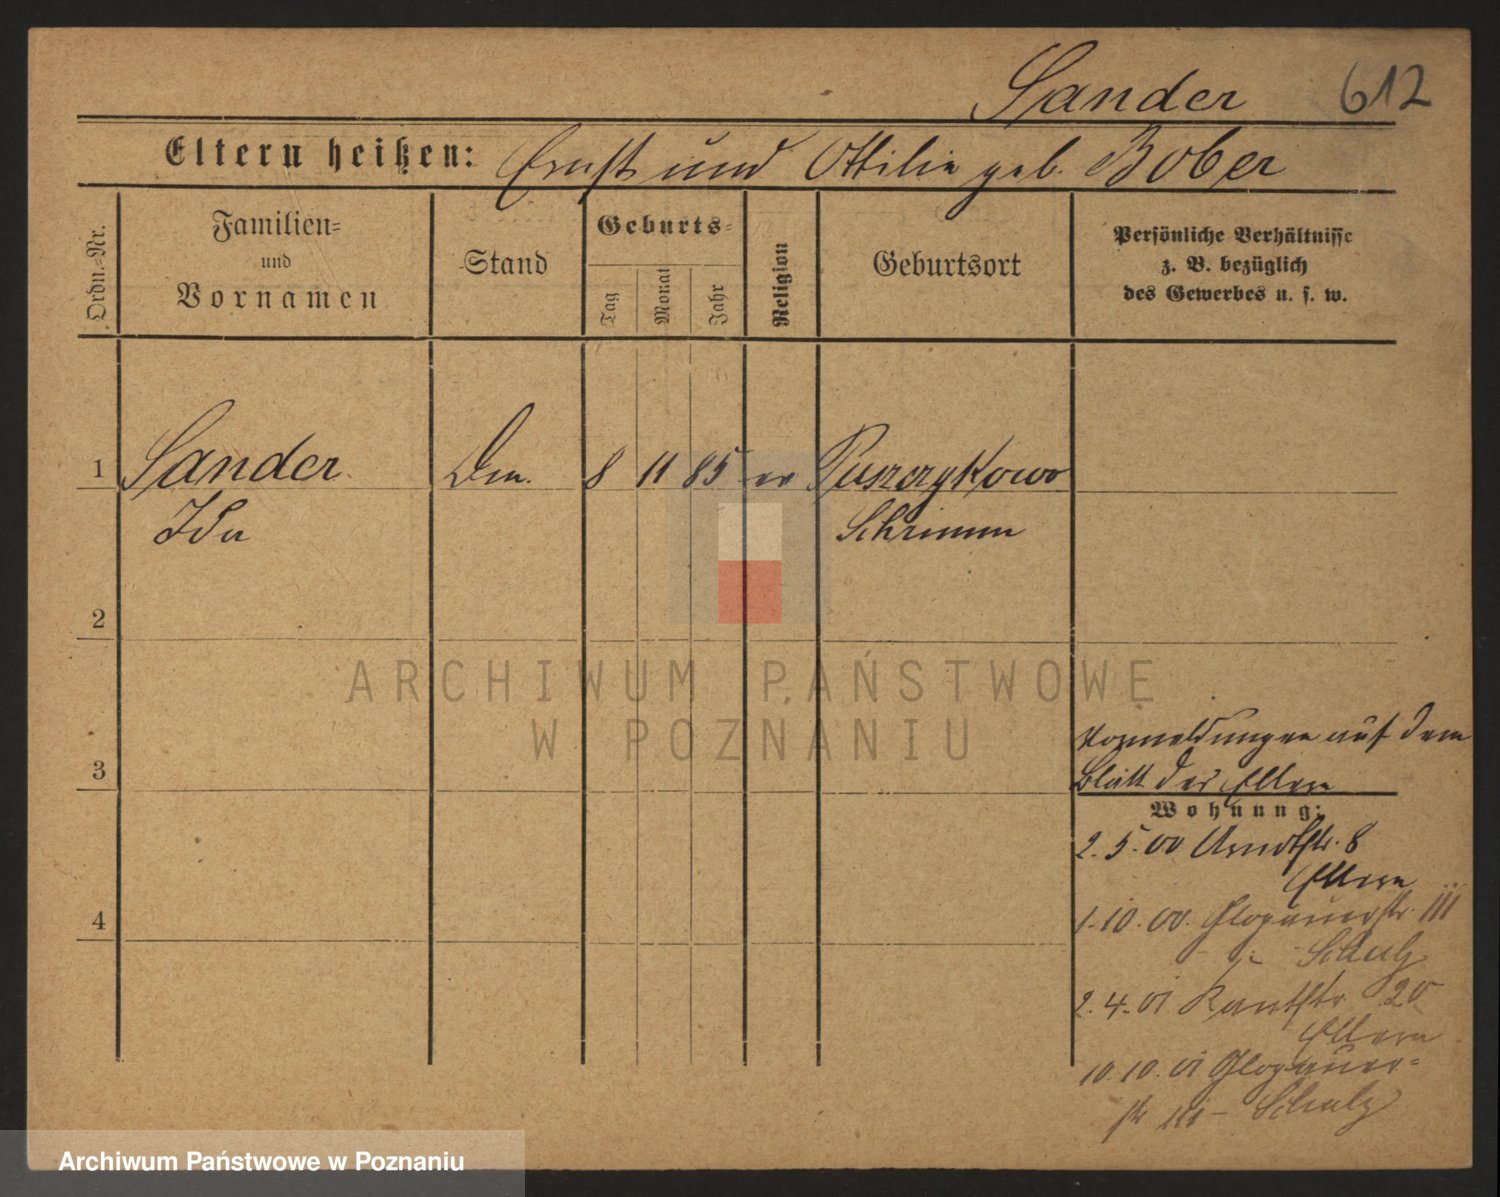 Sander 612
Eltern heißen: Ernst und Ottilie geb. Bober
Ordn.-Nr.
Familien-
und
Vornamen
Stand
Geburts-
Tag
Monat
Jahr
Religion
Geburtsort
Persönliche Verhältnisse
z. B. bezüglich
des Gewerbes u. s. w.
1 Sander 8 11 85 ev Puszczykowo
Ida Schrimm
2
ARCHIWUM PAŃSTWOWE
W POZNANIU
Vormeldungen auf dem
3 Blatt der Eltern
Wohnung:
2. 5. 00 Arndtstr. 8
Eltern
4 1. 10. 00. Glogauerstr. 111
Schulz
2. 4. 01 Kantstr 20
Eltern
10. 10. 01 Glogauer-
str 111 - Schulz
Archiwum Państwowe w Poznaniu